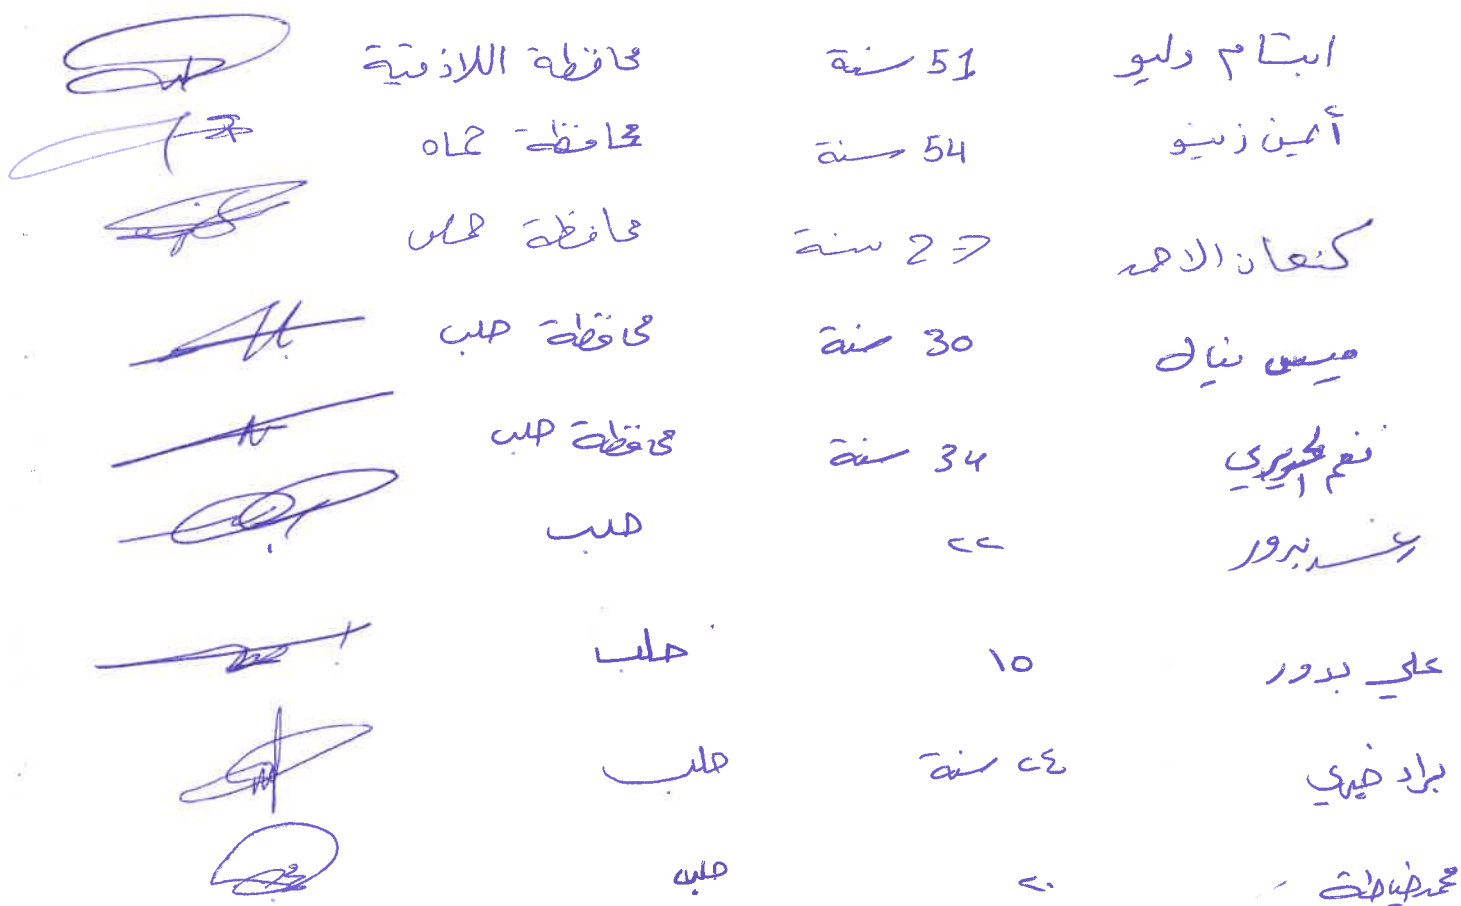 ابتسام دليو 51 سنة محافظة اللاذقية
أمين زينو 54 سنة محافظة حماه
كنعان الاحمد 27 سنة محافظة حمص
ميس نيال 30 سنة محافظة حلب
نغم الحريري 34 سنة محافظة حلب
رغد بدور ٢٢ حلب
علي بدور ١٥ حلب
براد خيري ٢٤ سنة حلب
محمد خياطة ٢٠ حلب